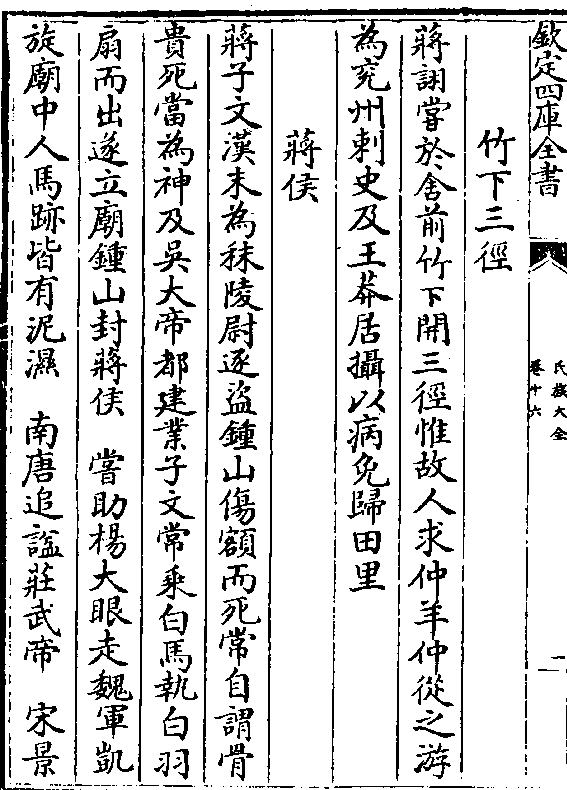 欽定四庫全書
氏族大全
卷十六
二
竹下三徑
蔣詡嘗於舍前竹下開三徑惟故人求仲羊仲從之游
為兖州刺史及王莽居攝以病免歸田里
蔣侯
蔣子文漢末為秣陵尉逐盜鍾山傷額而死常自謂骨
貴死當為神及吳大帝都建業子文常乘白馬執白羽
扇而出遂立廟鍾山封蔣侯　嘗助楊大眼走魏軍凱
旋廟中人馬跡皆有泥濕　南唐追諡莊武帝　宋景